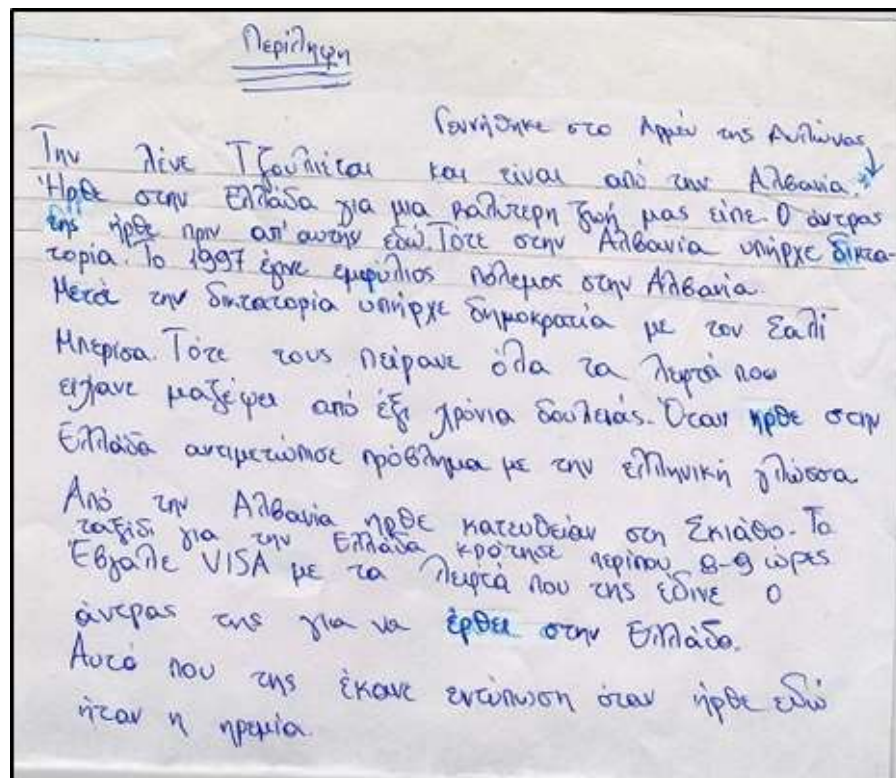 Περίληψη
Γεννήθηκε στο Αρμέν της Αυλώνας
Την λένε Τζουλιέται και είναι από την Αλβανία.
Ήρθε στην Ελλάδα για μια καλυτερη ζωή μας είπε. Ο άντρας
της ήρθε πριν απ' αυτην εδώ. Τότε στην Αλβανία υπήρχε δικτα-
τορία. Το 1997 έγινε εμφύλιος πόλεμος στην Αλβανία.
Μετά την δικτατορία υπήρχε δημοκρατία με τον Σαλί
Μπερίσα. Τότε τους πείρανε όλα τα λεφτά που
είχανε μαζέψει από έξι χρόνια δουλειάς. Όταν ήρθε στην
Ελλάδα αντιμετώπισε πρόβλημα με την ελληνική γλώσσα
Από την Αλβανία ήρθε κατευθείαν στη Σκιάθο. Το
ταξίδι για την Ελλάδα κράτησε περίπου 8-9 ώρες
Έβγαλε VISA με τα λεφτά που της έδινε ο
άντρας της για να έρθει στην Ελλάδα.
Αυτό που της έκανε εντύπωση όταν ήρθε εδώ
ήταν η ηρεμία.